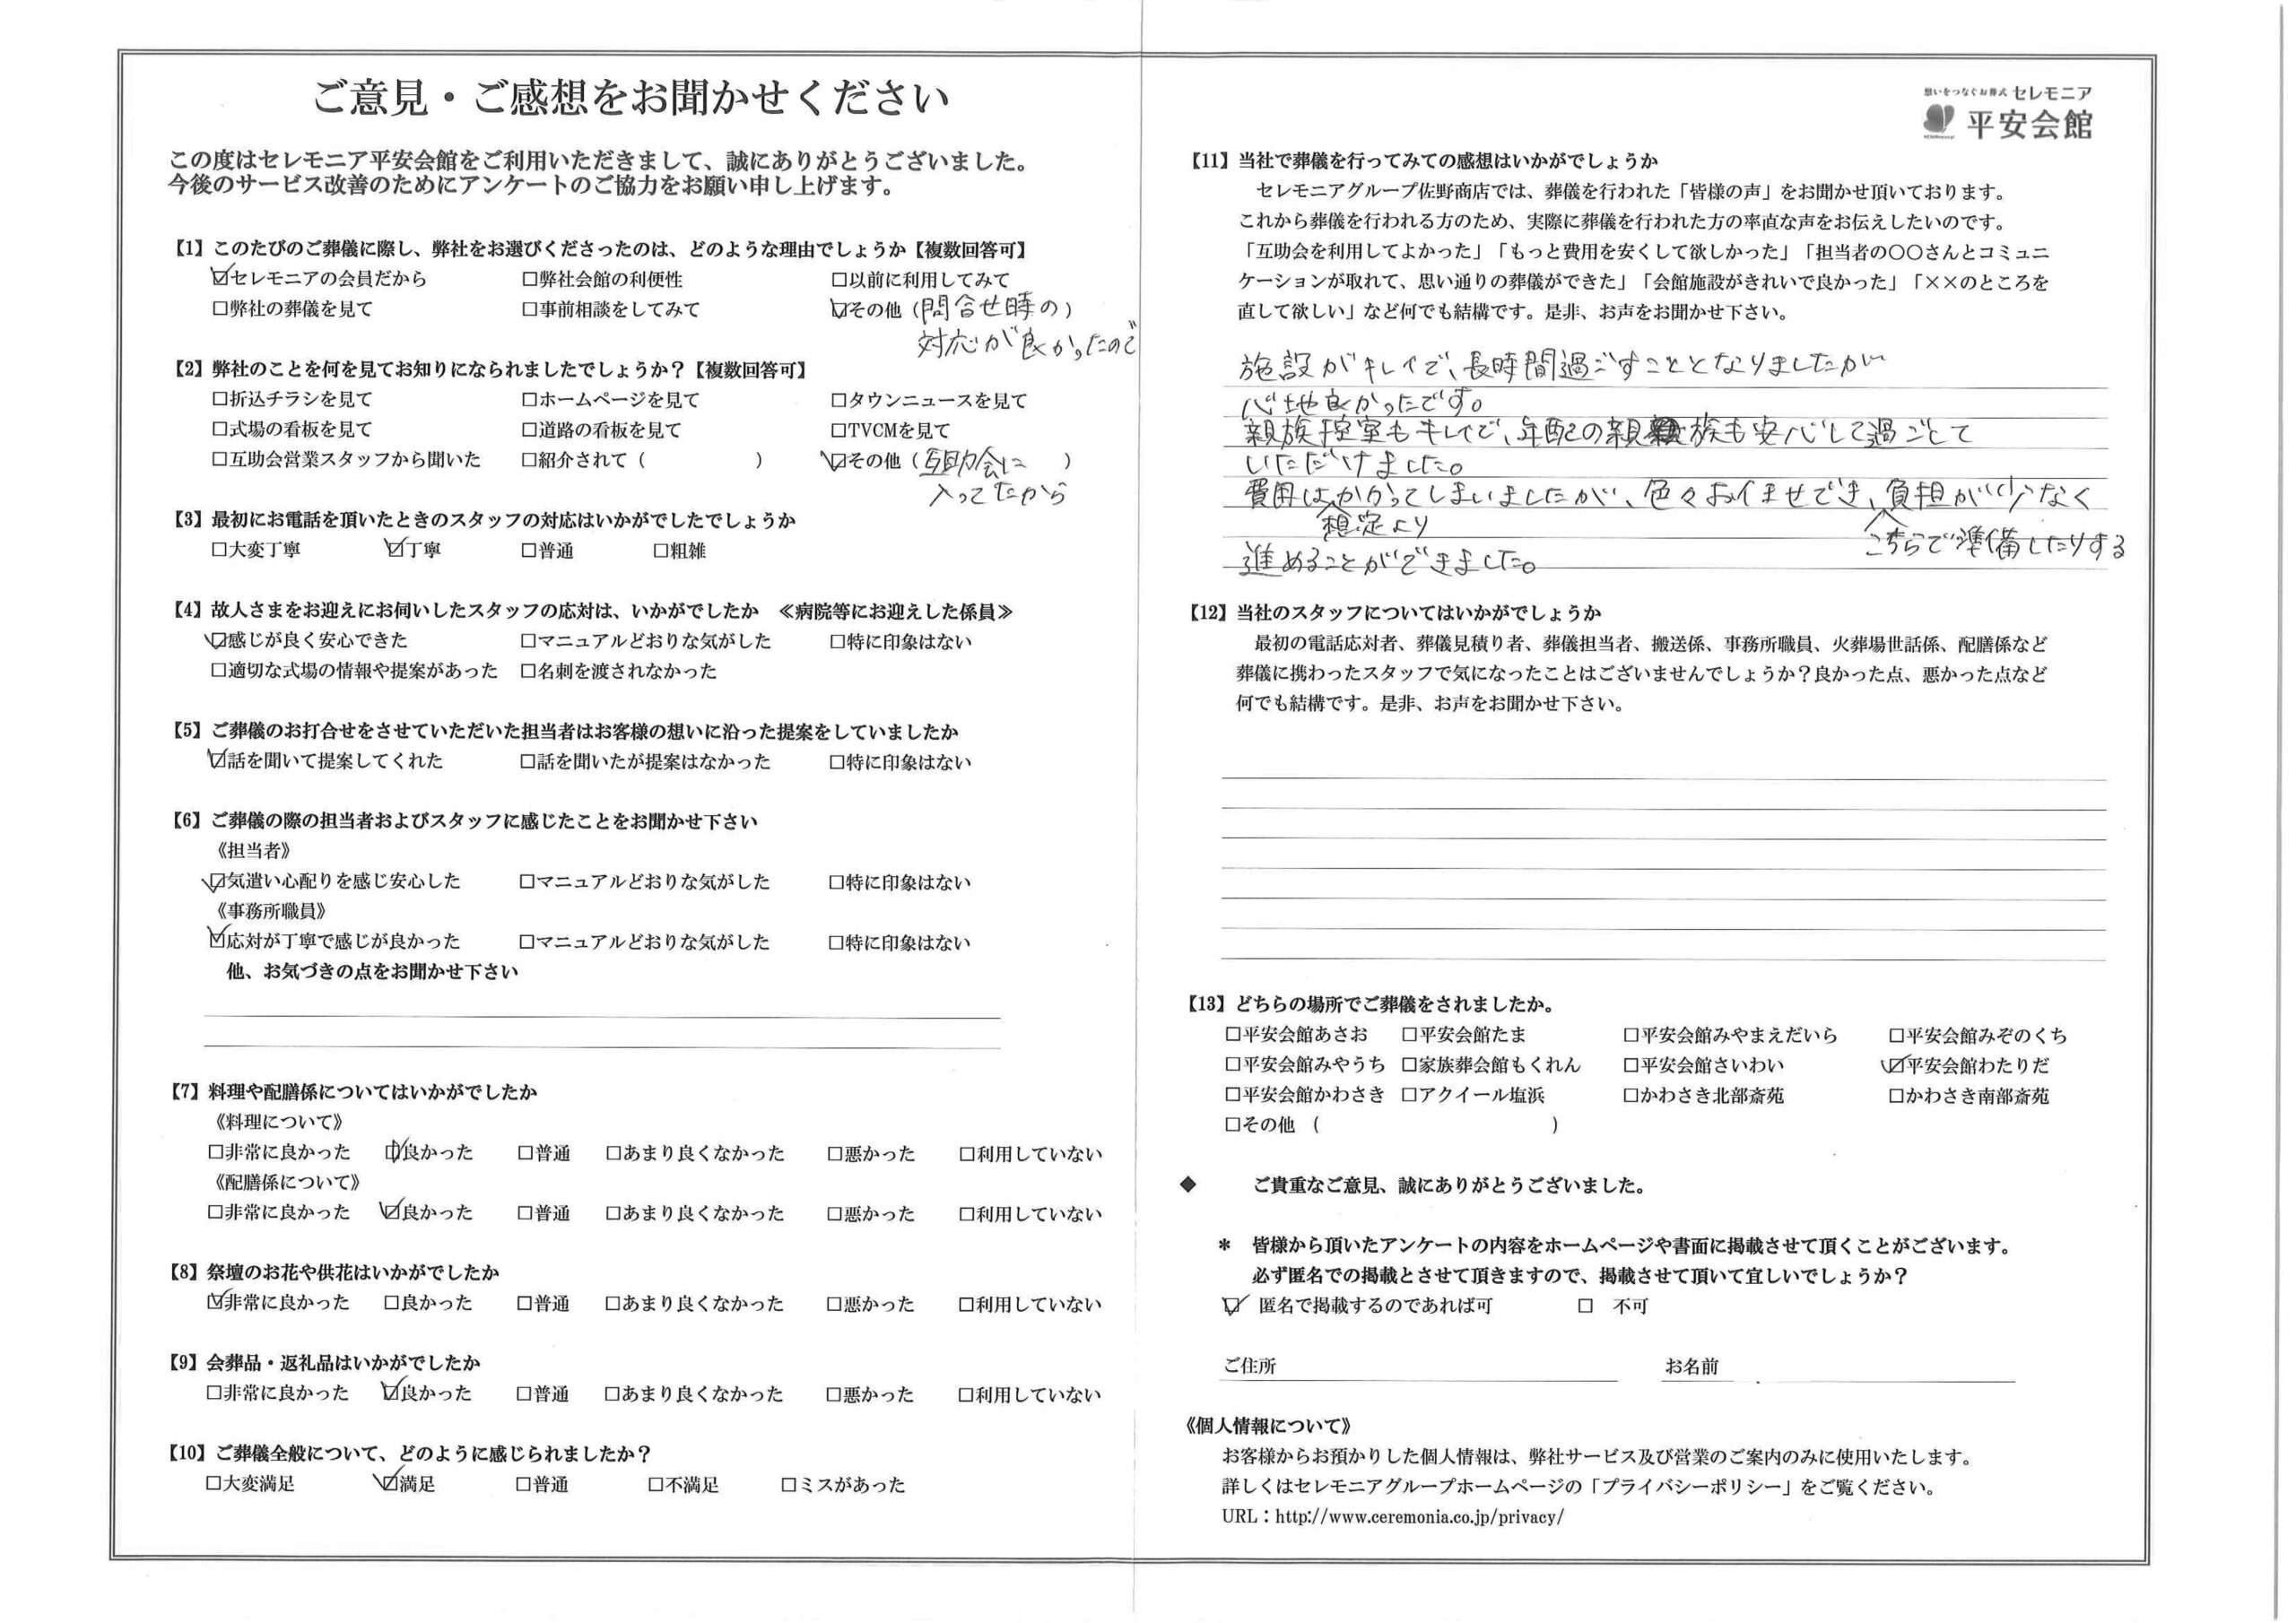 ご意見・ご感想をお聞かせください
この度はセレモニア平安会館をご利用いただきまして、誠にありがとうございました。
今後のサービス改善のためにアンケートのご協力をお願い申し上げます。
【1】このたびのご葬儀に際し、弊社をお選びくださったのは、どのような理由でしょうか【複数回答可】
☑セレモニアの会員だから □弊社会館の利便性 □以前に利用してみて
□弊社の葬儀を見て □事前相談をしてみて ☑その他（問合せ時の）
対応が良かったので
【2】弊社のことを何を見てお知りになられましたでしょうか？【複数回答可】
□折込チラシを見て □ホームページを見て □タウンニュースを見て
□式場の看板を見て □道路の看板を見て □TVCMを見て
□互助会営業スタッフから聞いた □紹介されて（ ） ☑その他（互助会に ）
入ってたから
【3】最初にお電話を頂いたときのスタッフの対応はいかがでしたでしょうか
□大変丁寧 ☑丁寧 □普通 □粗雑
【4】故人さまをお迎えにお伺いしたスタッフの応対は、いかがでしたか ≪病院等にお迎えした係員≫
☑感じが良く安心できた □マニュアルどおりな気がした □特に印象はない
□適切な式場の情報や提案があった □名刺を渡されなかった
【5】ご葬儀のお打合せをさせていただいた担当者はお客様の想いに沿った提案をしていましたか
☑話を聞いて提案してくれた □話を聞いたが提案はなかった □特に印象はない
【6】ご葬儀の際の担当者およびスタッフに感じたことをお聞かせ下さい
《担当者》
☑気遣い心配りを感じ安心した □マニュアルどおりな気がした □特に印象はない
《事務所職員》
☑応対が丁寧で感じが良かった □マニュアルどおりな気がした □特に印象はない
他、お気づきの点をお聞かせ下さい
【7】料理や配膳係についてはいかがでしたか
《料理について》
□非常に良かった ☑良かった □普通 □あまり良くなかった □悪かった □利用していない
《配膳係について》
□非常に良かった ☑良かった □普通 □あまり良くなかった □悪かった □利用していない
【8】祭壇のお花や供花はいかがでしたか
☑非常に良かった □良かった □普通 □あまり良くなかった □悪かった □利用していない
【9】会葬品・返礼品はいかがでしたか
□非常に良かった ☑良かった □普通 □あまり良くなかった □悪かった □利用していない
【10】ご葬儀全般について、どのように感じられましたか？
□大変満足 ☑満足 □普通 □不満足 □ミスがあった
想いをつなぐお葬式 セレモニア
平安会館
【11】当社で葬儀を行ってみての感想はいかがでしょうか
セレモニアグループ佐野商店では、葬儀を行われた「皆様の声」をお聞かせ頂いております。
これから葬儀を行われる方のため、実際に葬儀を行われた方の率直な声をお伝えしたいのです。
「互助会を利用してよかった」「もっと費用を安くして欲しかった」「担当者の〇〇さんとコミュニ
ケーションが取れて、思い通りの葬儀ができた」「会館施設がきれいで良かった」「××のところを
直して欲しい」など何でも結構です。是非、お声をお聞かせ下さい。
施設がキレイで、長時間過ごすこととなりましたが
心地良かったです。
親族控室もキレイで、年配の親族も安心して過ごして
いただけました。
費用はかかってしまいましたが、色々おまかせでき、負担が少なく
想定より
こちらで準備したりする
進めることができました。
【12】当社のスタッフについてはいかがでしょうか
最初の電話応対者、葬儀見積り者、葬儀担当者、搬送係、事務所職員、火葬場世話係、配膳係など
葬儀に携わったスタッフで気になったことはございませんでしょうか？良かった点、悪かった点など
何でも結構です。是非、お声をお聞かせ下さい。
【13】どちらの場所でご葬儀をされましたか。
□平安会館あさお □平安会館たま □平安会館みやまえだいら □平安会館みぞのくち
□平安会館みやうち □家族葬会館もくれん □平安会館さいわい ☑平安会館わたりだ
□平安会館かわさき □アクイール塩浜 □かわさき北部斎苑 □かわさき南部斎苑
□その他（ ）
◆ ご貴重なご意見、誠にありがとうございました。
＊ 皆様から頂いたアンケートの内容をホームページや書面に掲載させて頂くことがございます。
必ず匿名での掲載とさせて頂きますので、掲載させて頂いて宜しいでしょうか？
☑ 匿名で掲載するのであれば可 □ 不可
ご住所 お名前
《個人情報について》
お客様からお預かりした個人情報は、弊社サービス及び営業のご案内のみに使用いたします。
詳しくはセレモニアグループホームページの「プライバシーポリシー」をご覧ください。
URL：http://www.ceremonia.co.jp/privacy/